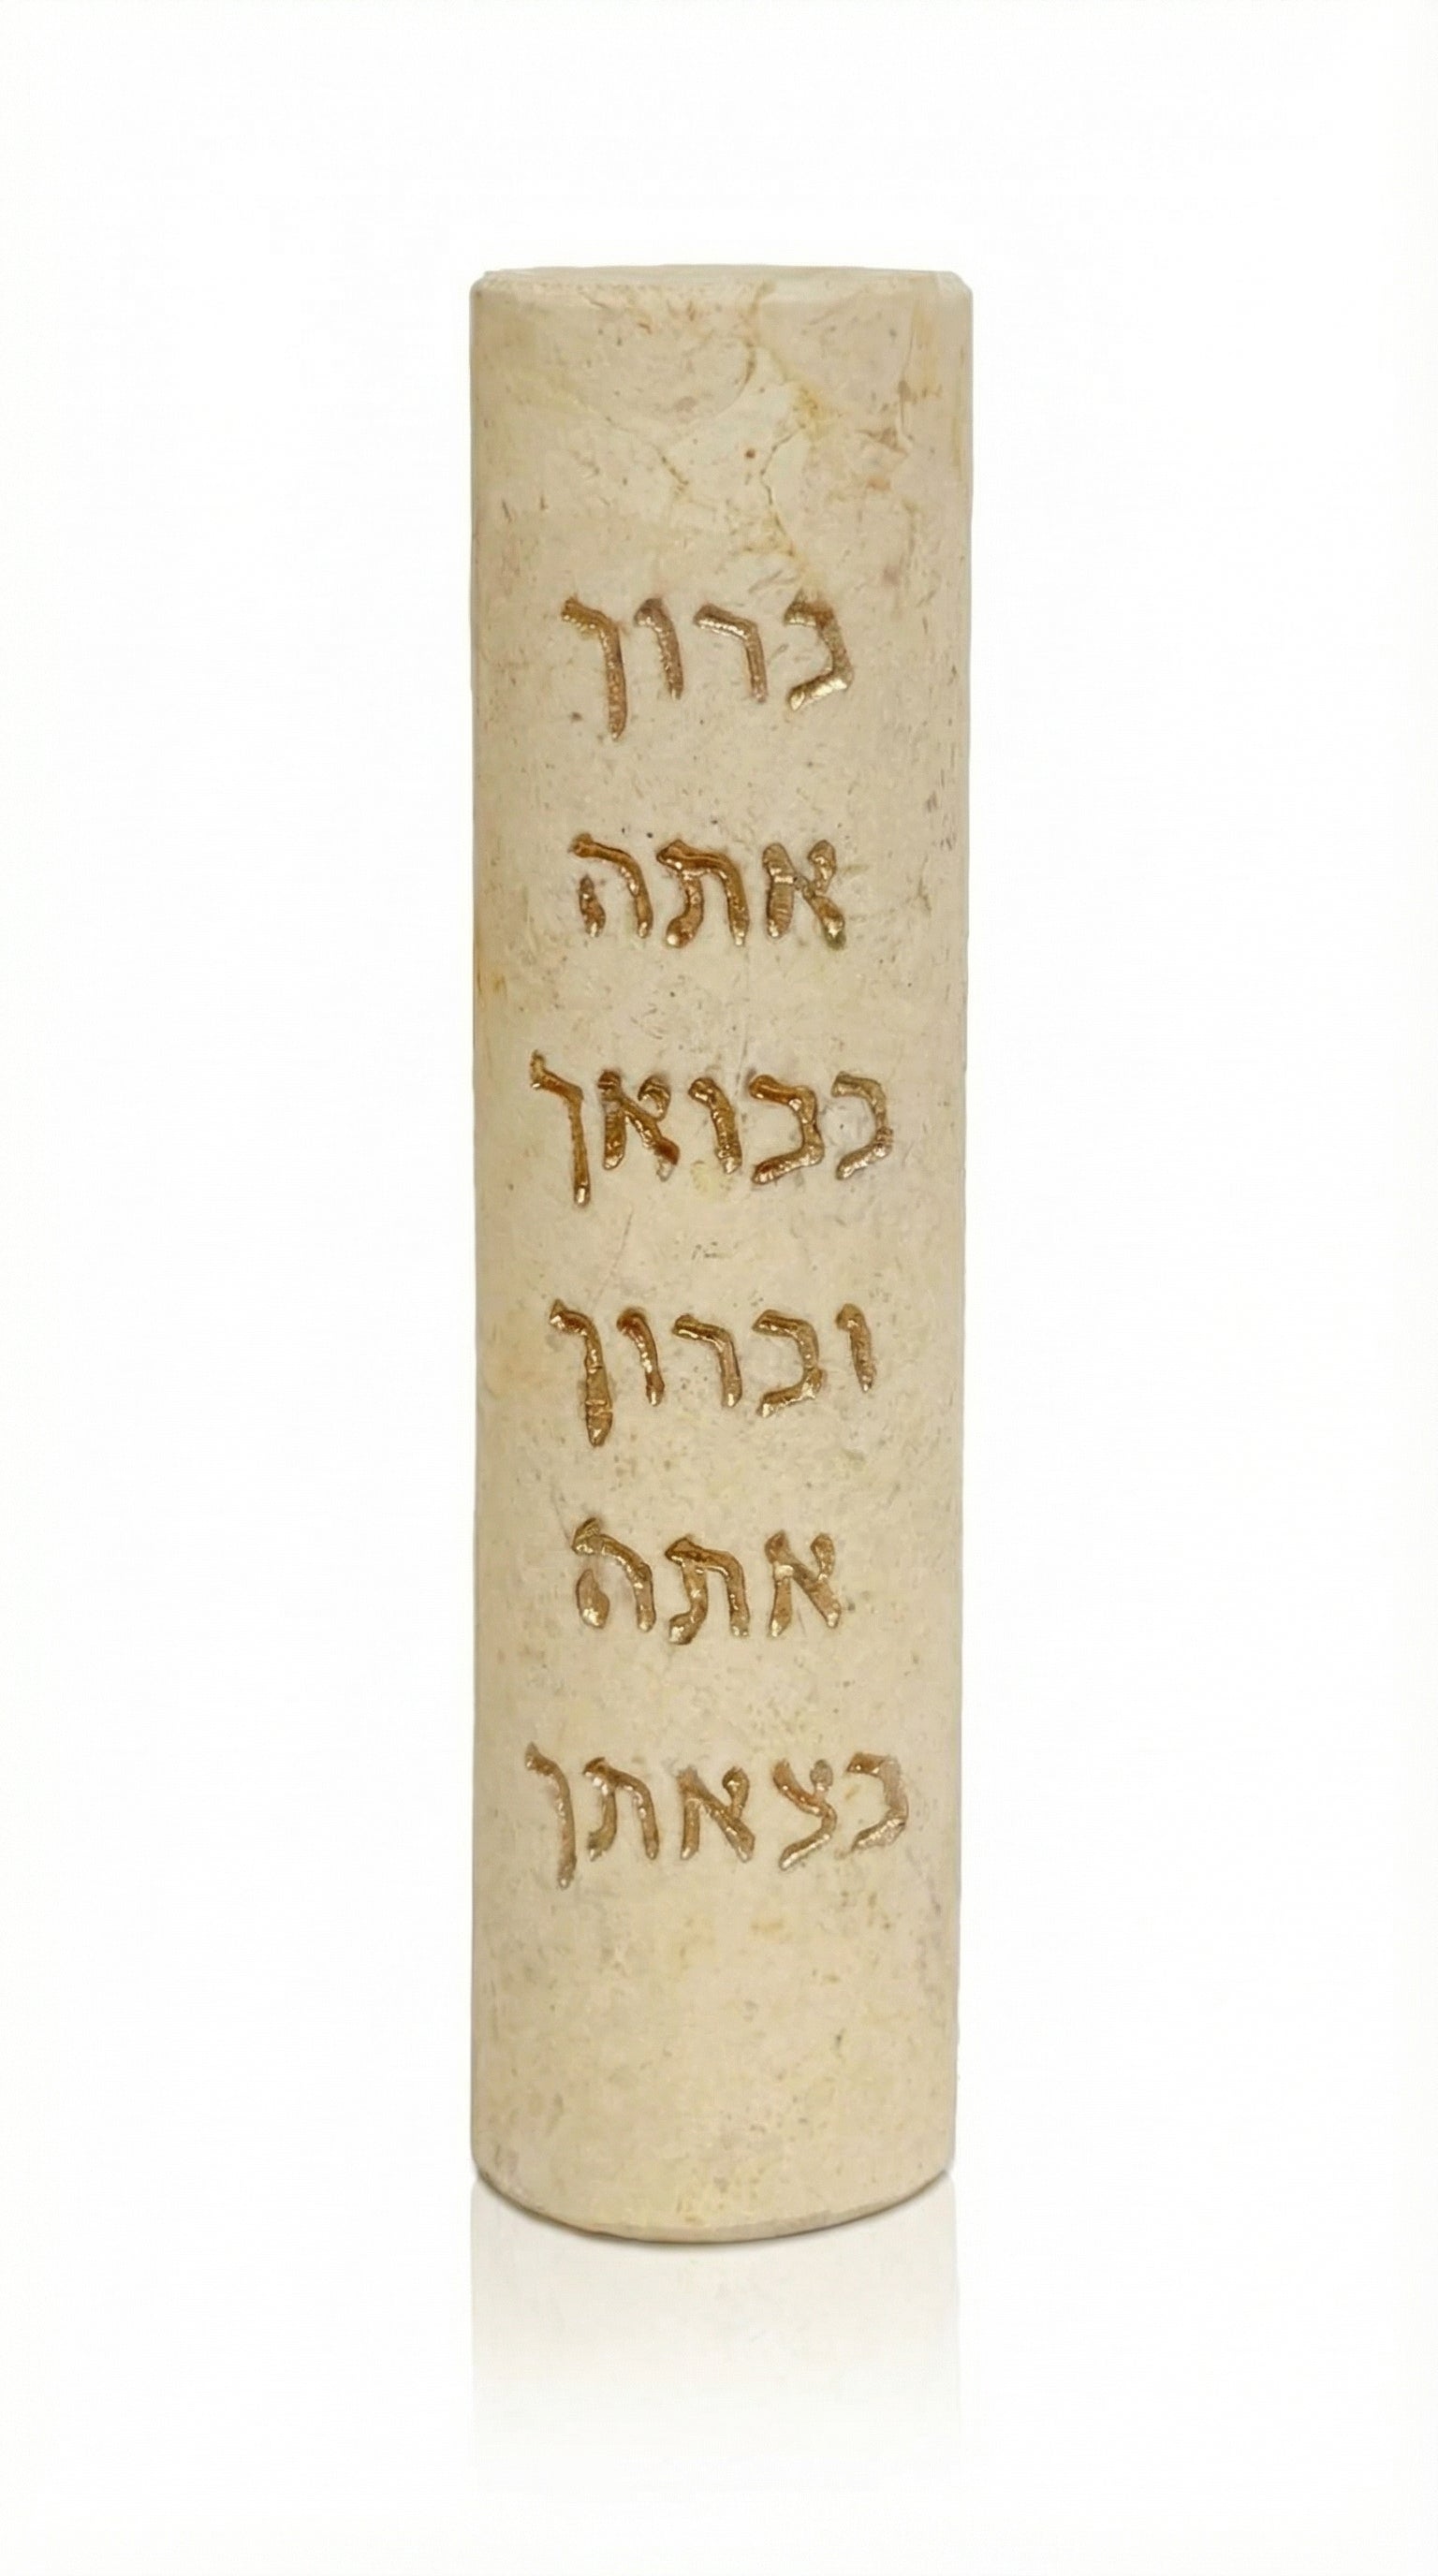 ברוך
אתה
בבואך
וברוך
אתה
בצאתך